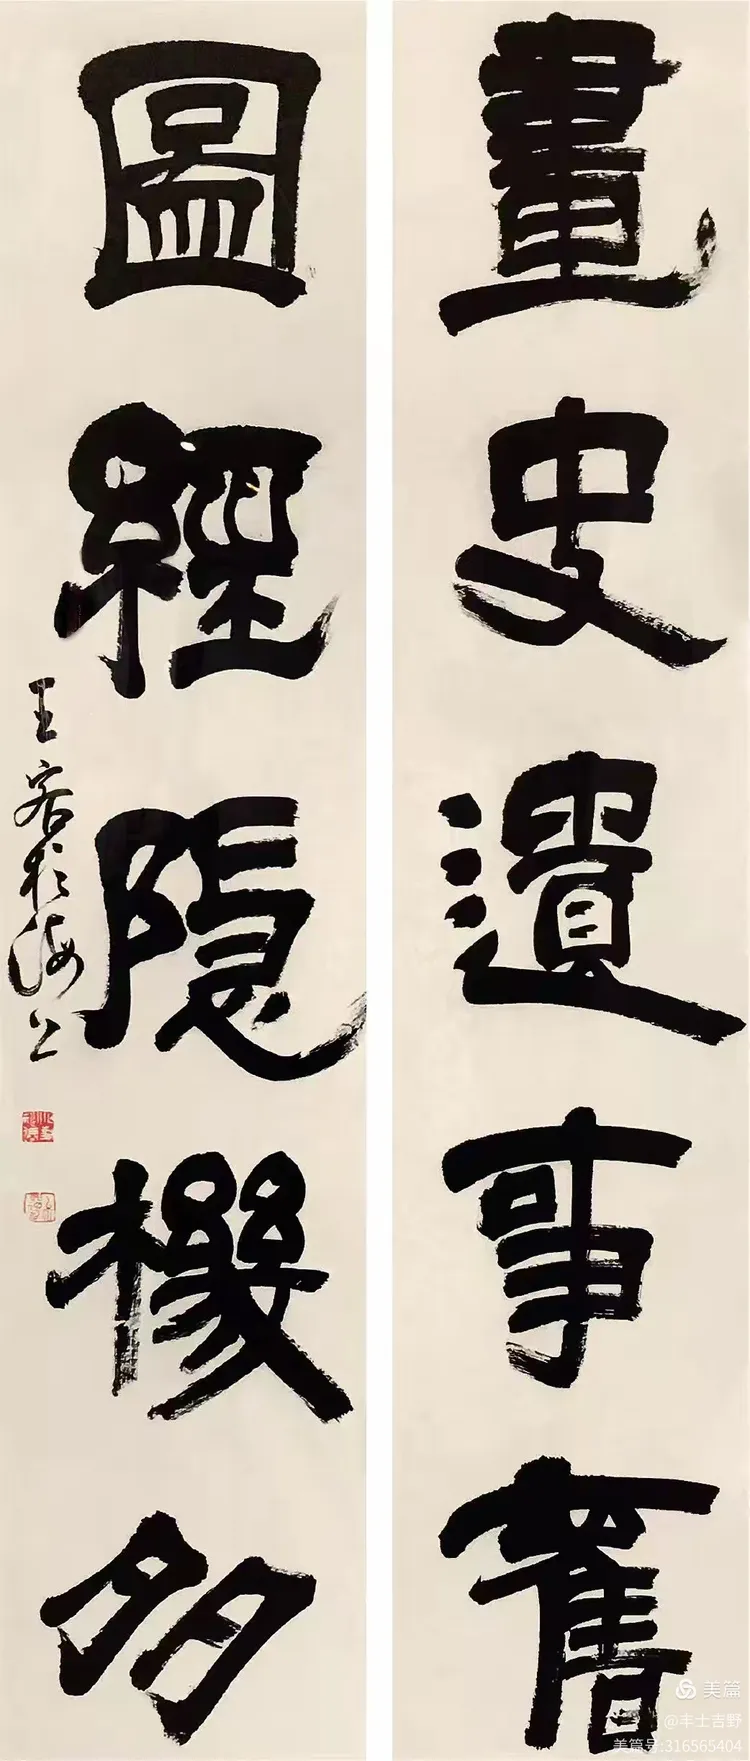 畫史遺事舊
圖經隱機多
王客於海上
美篇
@丰士吉野
美篇号:316565404